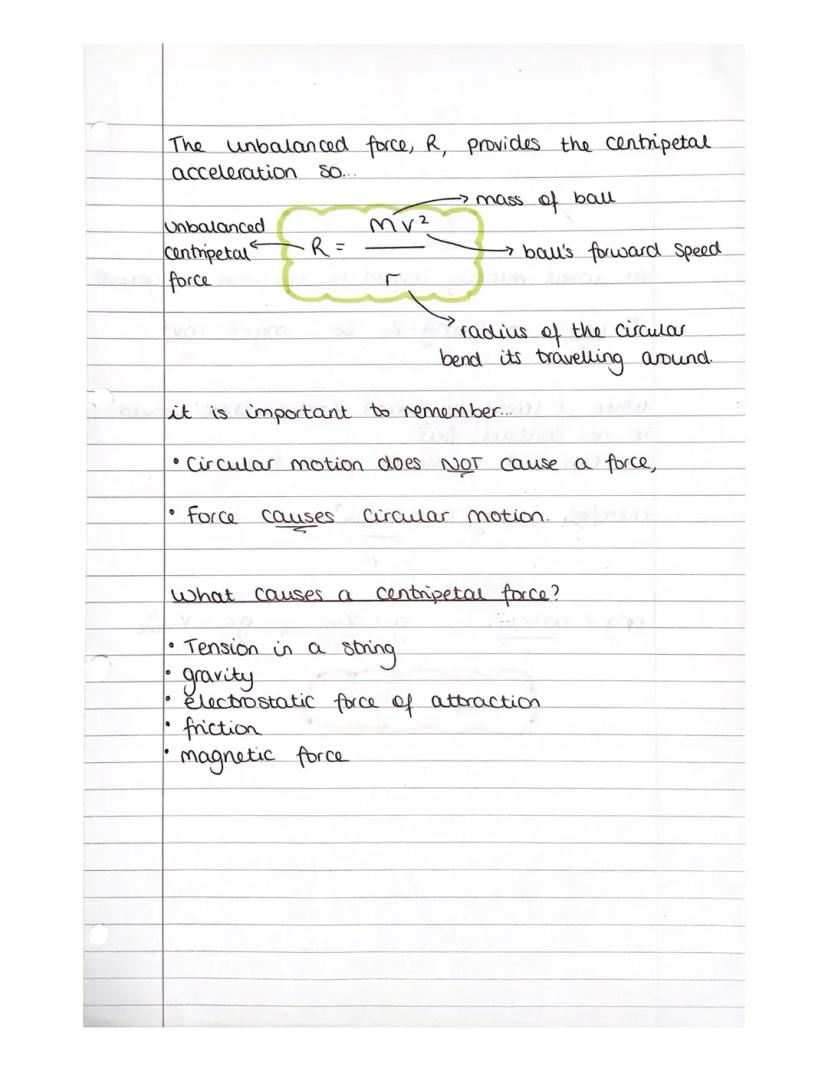 The unbalanced force, R, provides the centripetal
acceleration so...
→ mass of ball
unbalanced
centripetal ← R = mv²/r → ball's forward speed
force
→ radius of the circular
bend its travelling around.
it is important to remember...
• Circular motion does NOT cause a force,
• Force causes circular motion.
What causes a centripetal force?
• Tension in a string
• gravity
• electrostatic force of attraction
• friction
• magnetic force